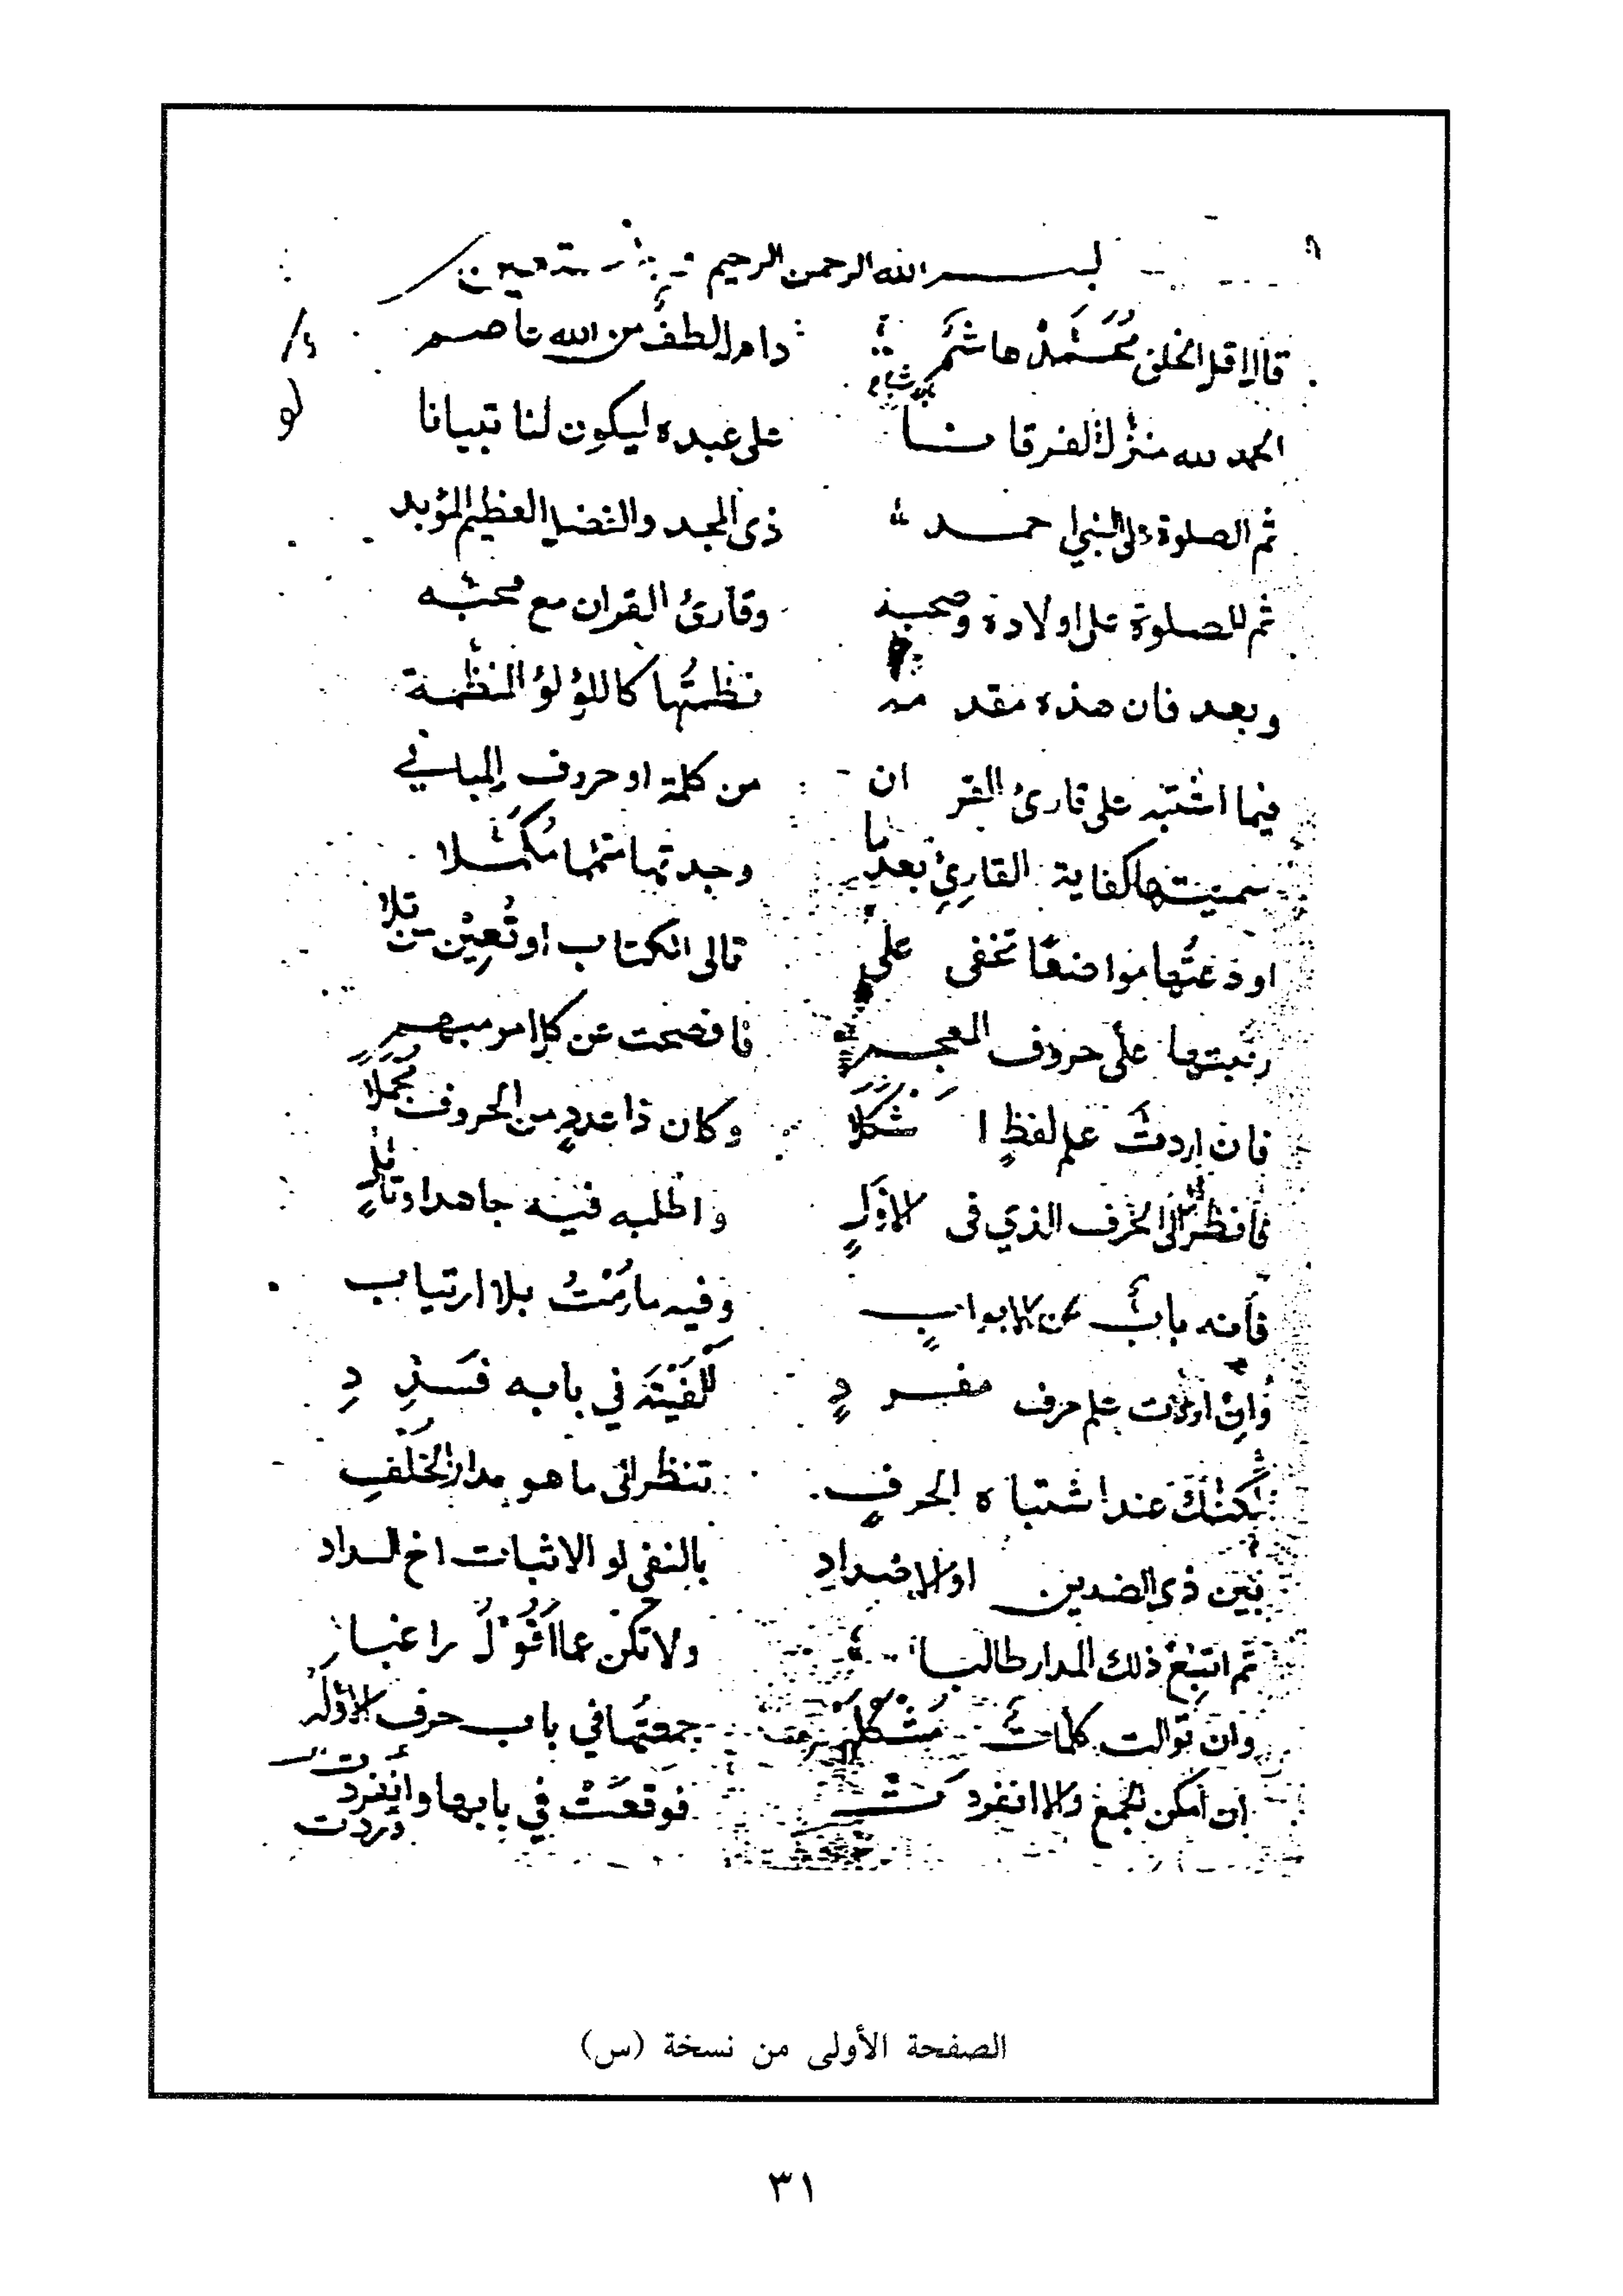 بسم الله الرحمن الرحيم وبه نستعين
قال اقل الخلق محمد هاشم دام له لطف من الله عاصم
الحمد لله منزل الفرقانا على عبده ليكون لنا تبيانا
ثم الصلوة على النبي احمد ذى المجد والفضل العظيم المؤبد
ثم الصلوة على اولاده وصحبه وقارئ القران مع محبه
وبعد فان هذه مقدمه نظمتها كاللؤلؤ المنظمة
فيما اشتبه على قارئ القران من كلمة او حروف المباني
سميتها كفاية القارئ بعد ما وجدتها متمما مكملا
اودعتها مواضعًا تخفى على تالى الكتاب او تعين من تلا
رتبتها على حروف المعجم فافصحت عن كل امر مبهم
فان اردت علم لفظٍ اشكلا وكان ذا عددٍ من الحروف مجملا
فانظر الى الحرف الذي فى الاولِ واطلبه فيه جاهدا وتاملِ
فانه باب من الابوابِ وفيه ما رمت بلا ارتياب
وان اردت علم حرف مفردٍ الفيته في بابه فسددِ
لكنك عند اشتباه الحرفٍ تنظر الى ما هو مدار الخلفِ
بين ذى الضدين او الاضدادِ بالنفى او الاثبات اخ السداد
ثم اتبع ذلك المدار طالبا ولا تكن عما اقول راغبا
وان توالت كلمات مشكله جمعتها في باب حرف الاوله
ان امكن الجمع والا انفردت فوقعت في بابها وانفردت
الصفحة الأولى من نسخة (س)
٣١